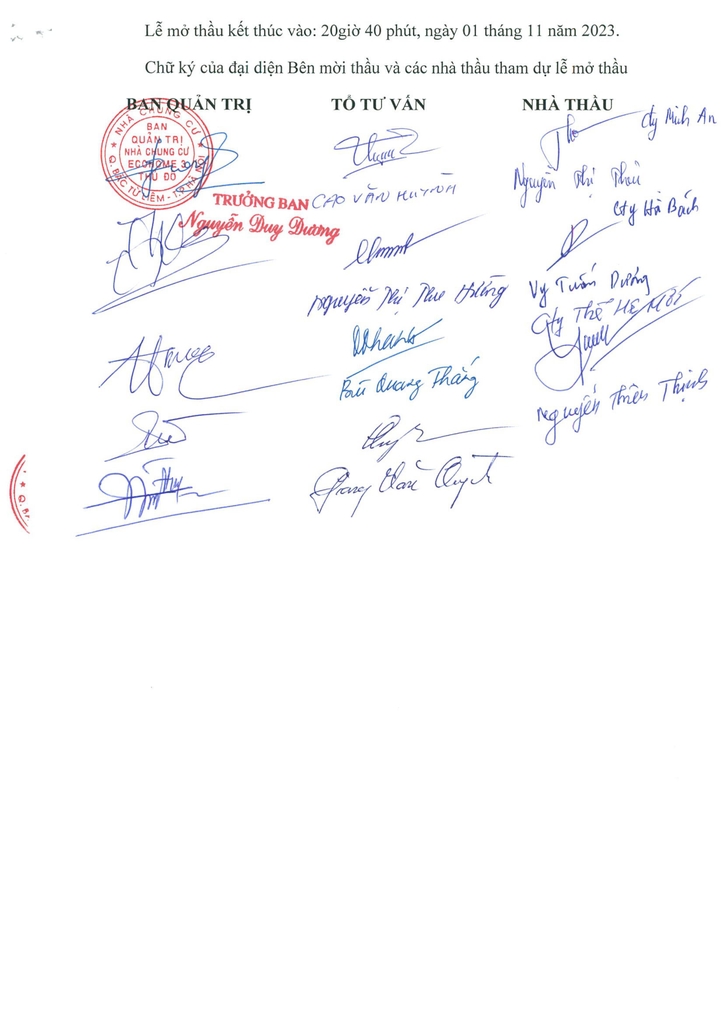 Lễ mở thầu kết thúc vào: 20giờ 40 phút, ngày 01 tháng 11 năm 2023.
Chữ ký của đại diện Bên mời thầu và các nhà thầu tham dự lễ mở thầu
BAN QUẢN TRỊ TỔ TƯ VẤN NHÀ THẦU
NHÀ CHUNG CƯ
BAN
QUẢN TRỊ
NHÀ CHUNG CƯ
THỦ ĐÔ
Q. BẮC TỪ LIÊM - T.P HÀ NỘI
TRƯỞNG BAN
Nguyễn Duy Dương
CAO VĂN HUYNH
Nguyễn Thị Thu Hường
Bùi Quang Thắng
Cty Minh An
Nguyễn Thị
Cty Hà Bách
Vy Tuấn Dương
Cty THẾ HỆ MỚI
Nguyễn Thiên Thịnh